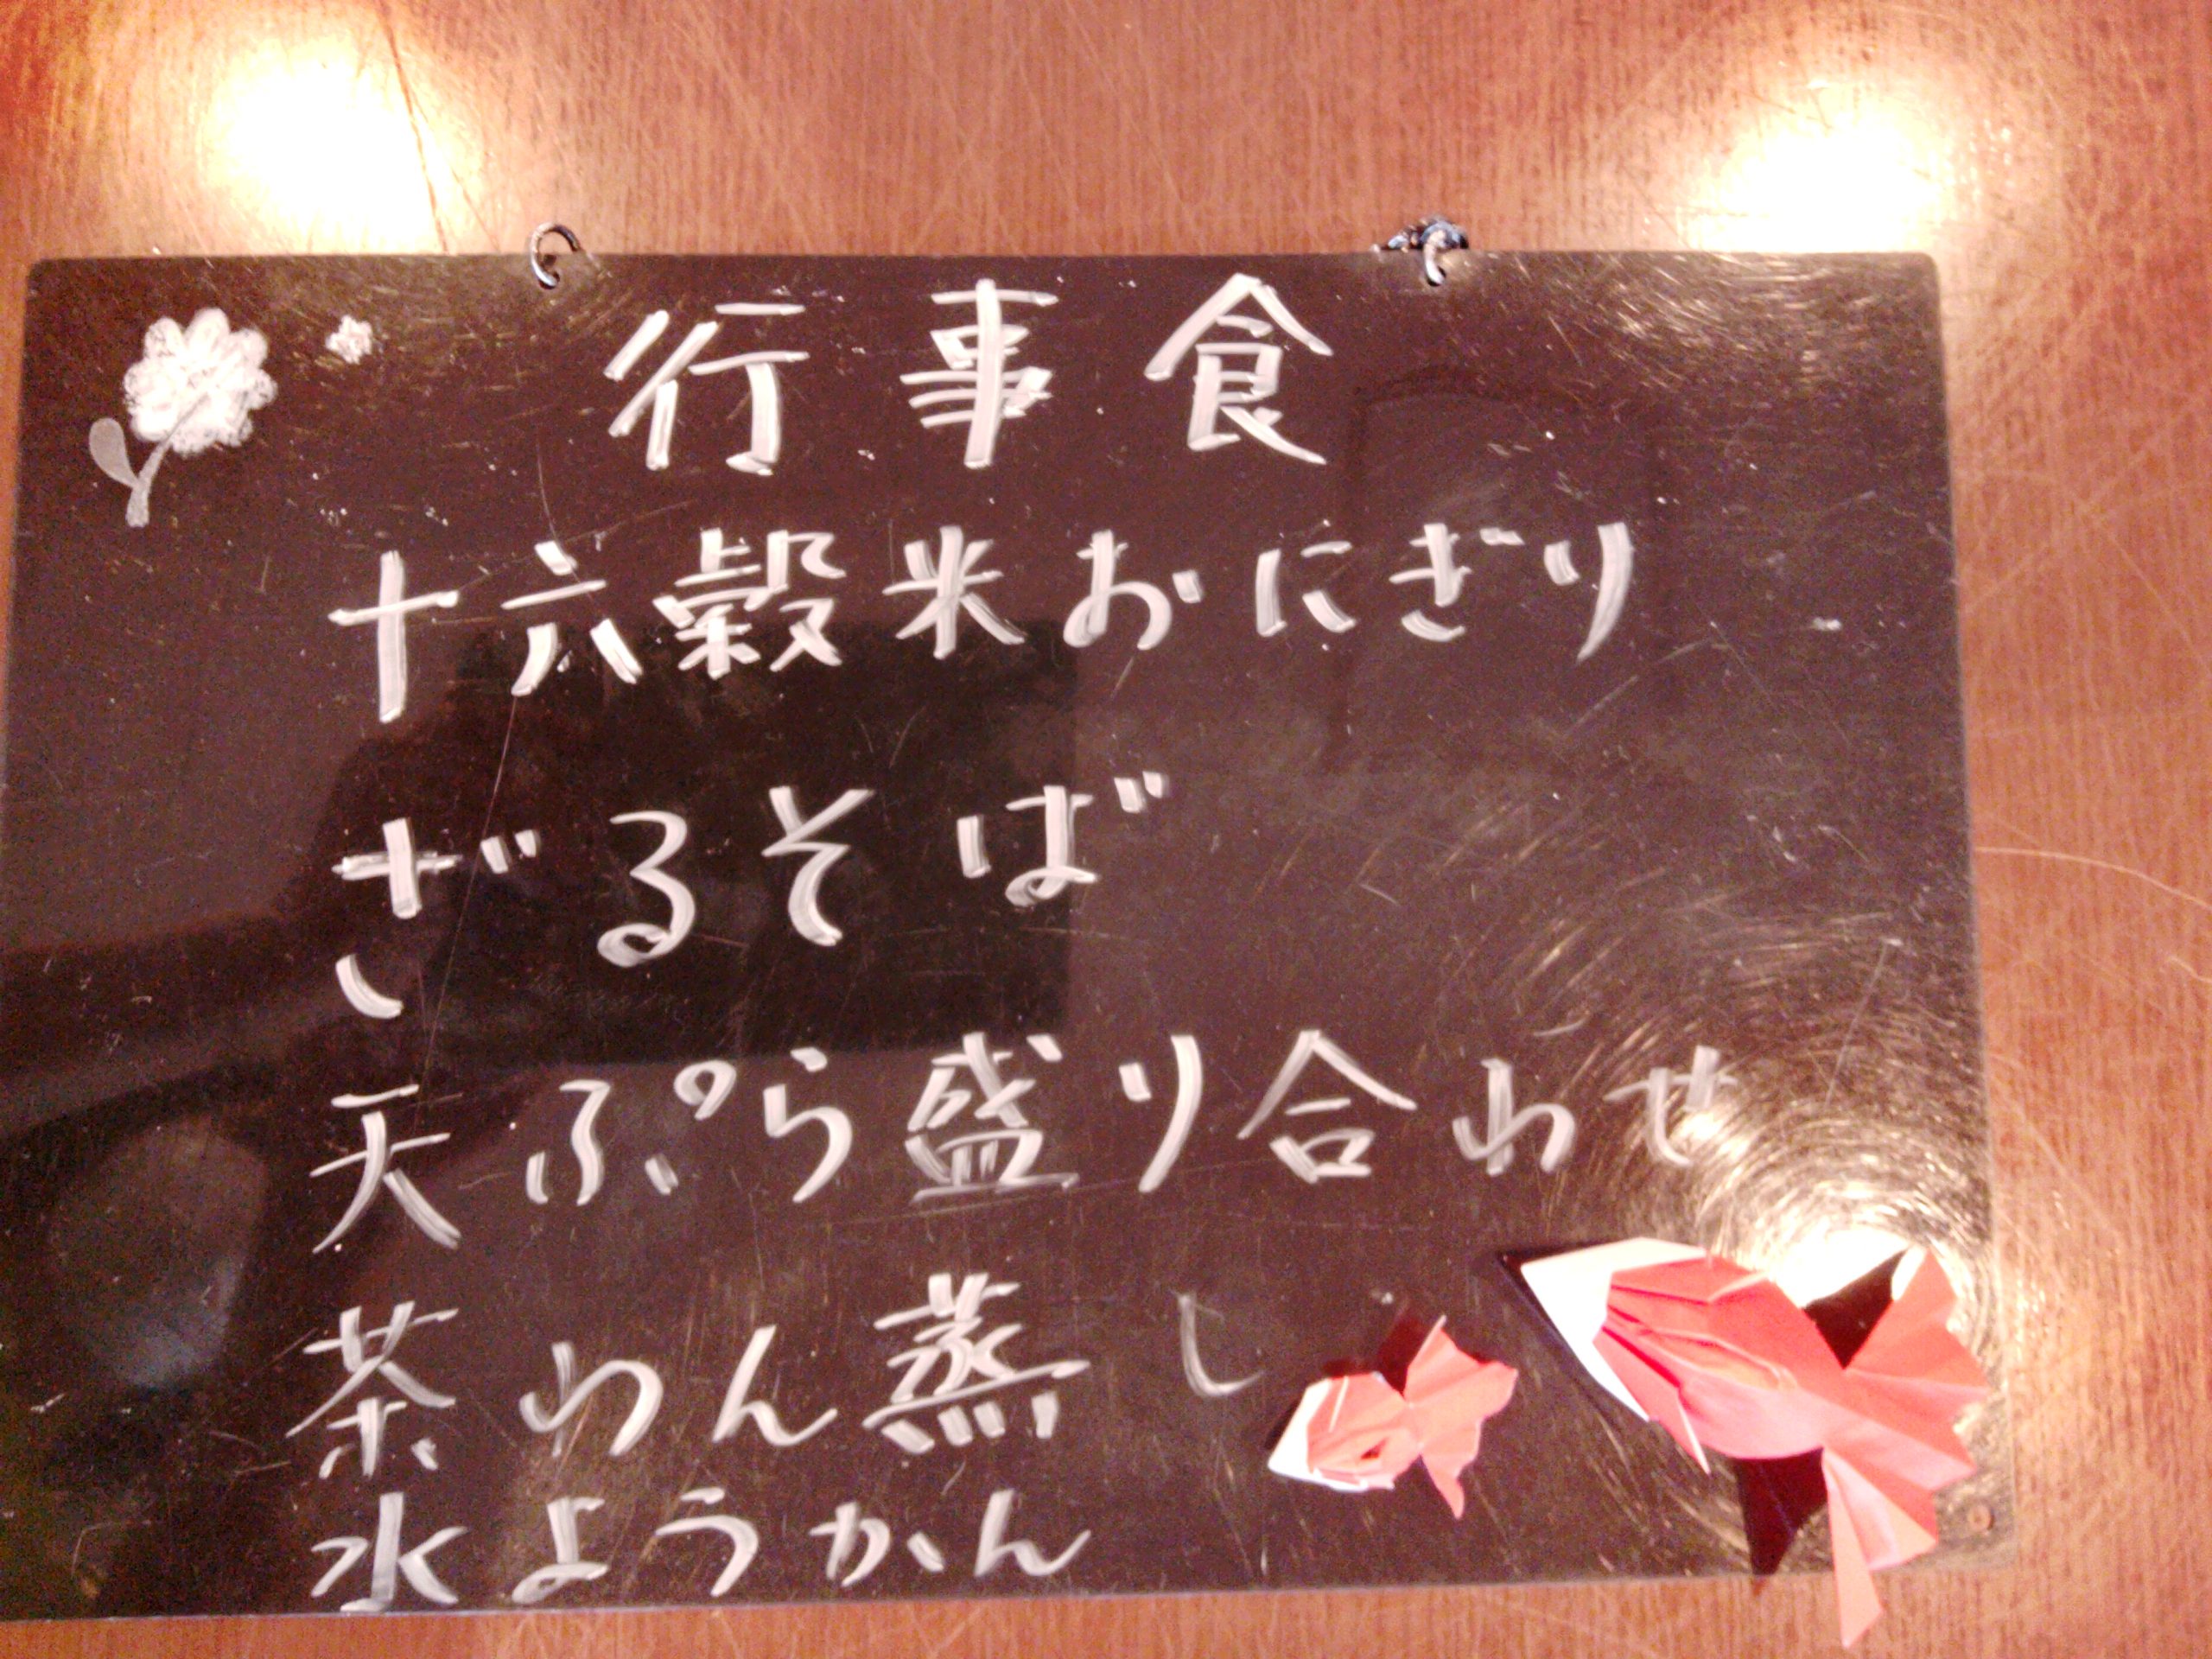 行事食
十六穀米おにぎり
ざるそば
天ぷら盛り合わせ
茶わん蒸し
水ようかん